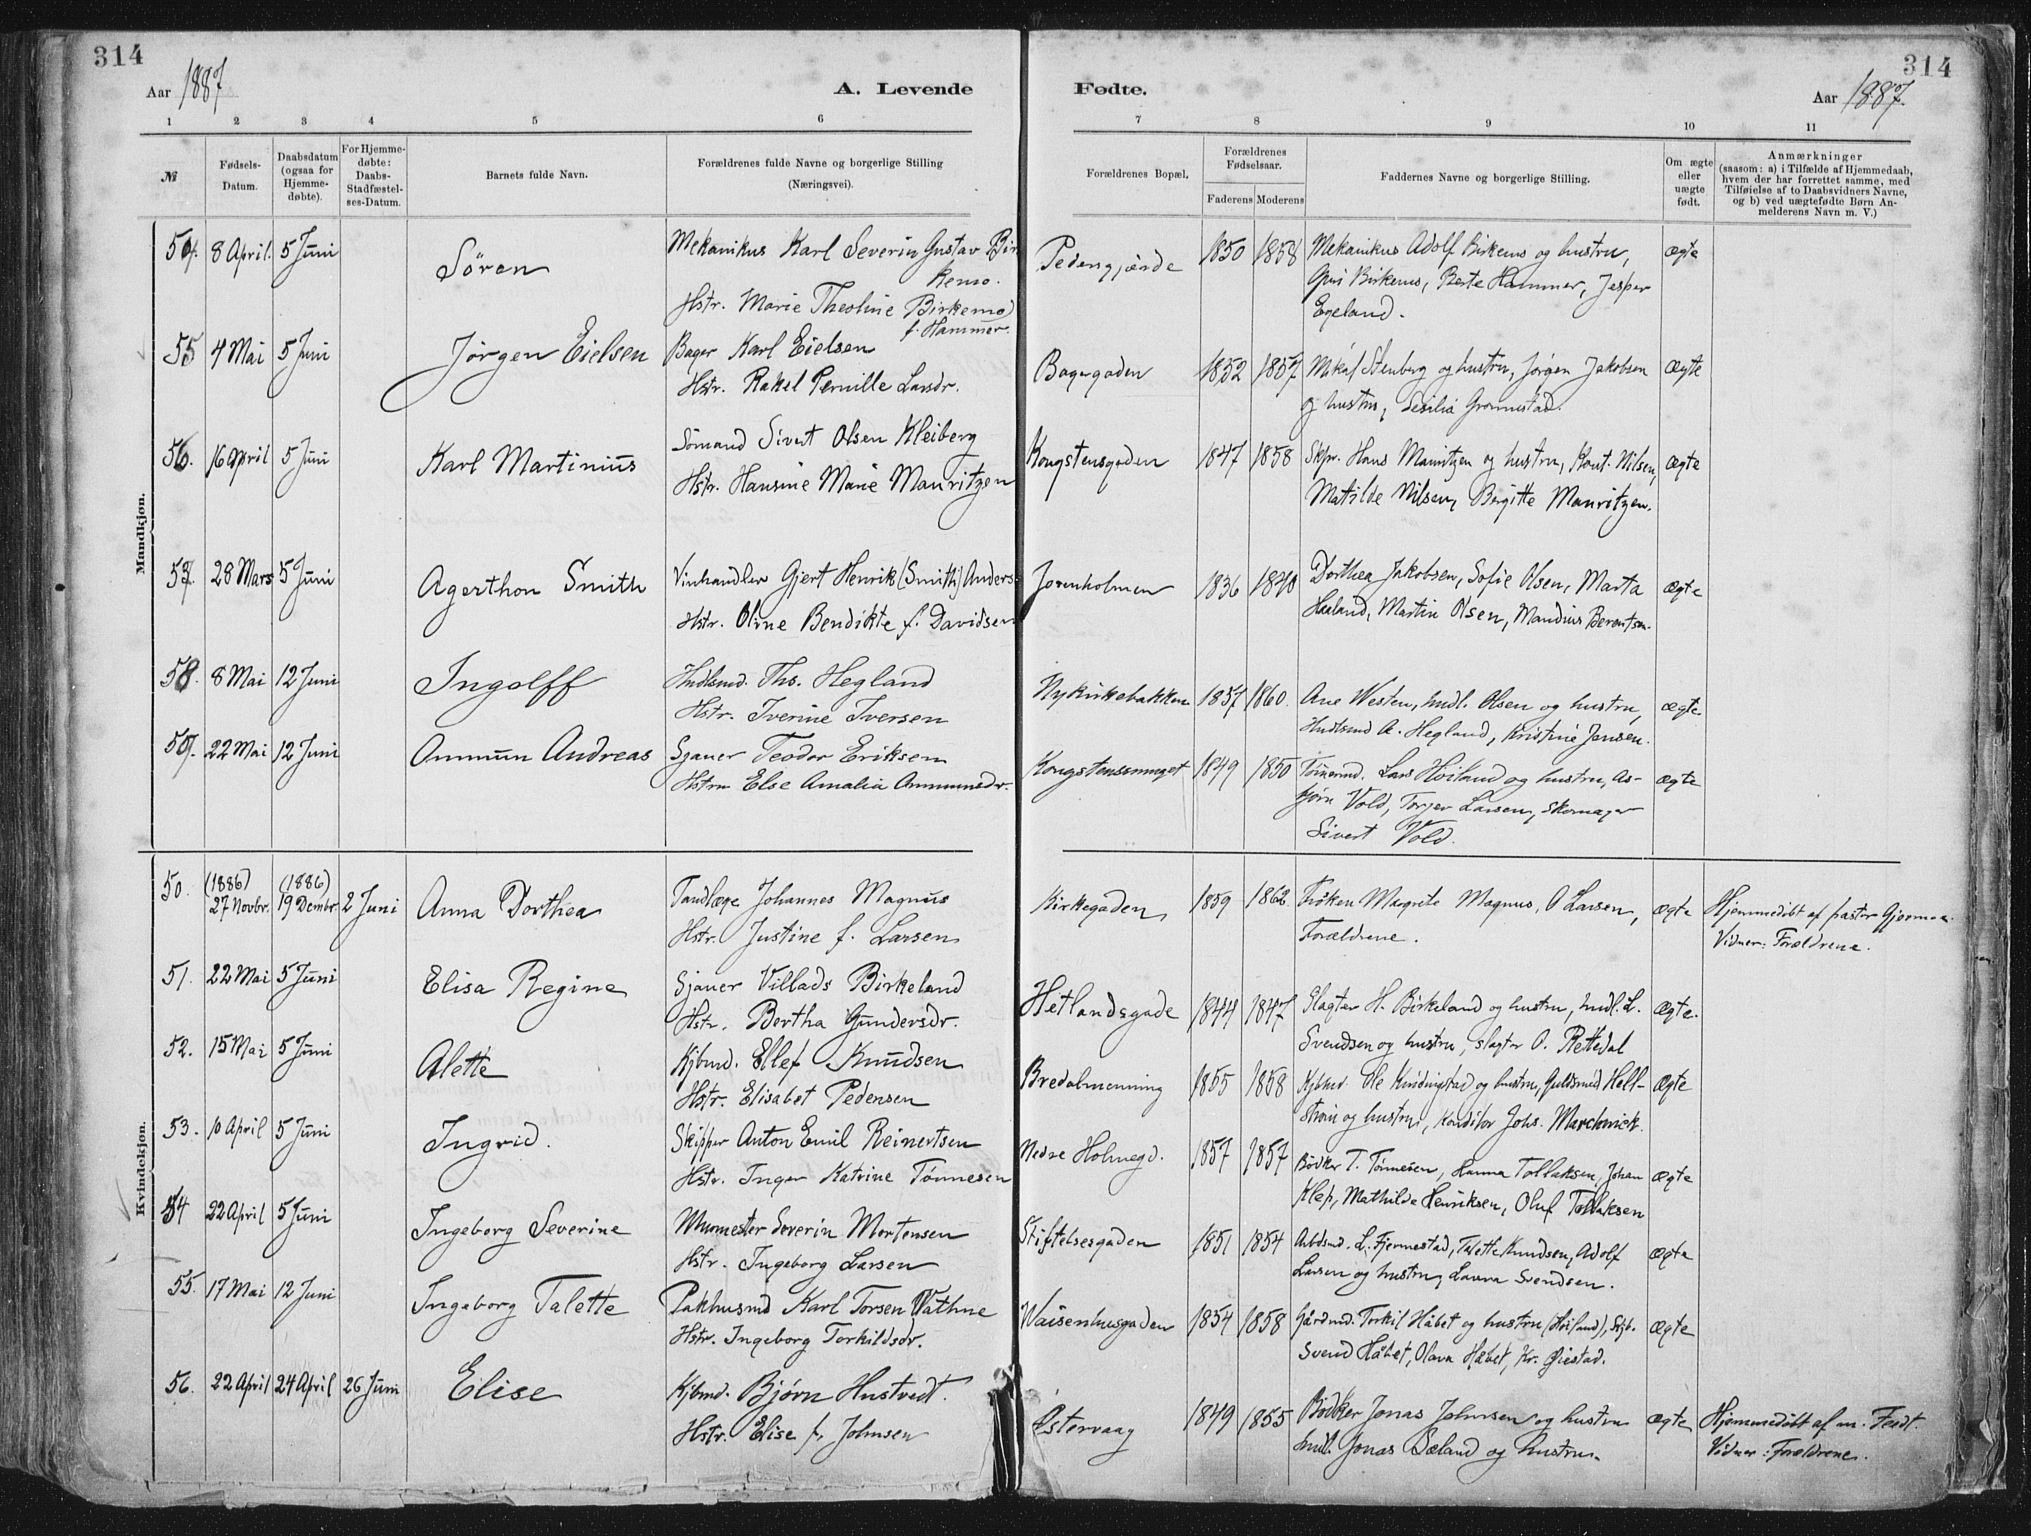 314
314
Aar 1887
A. Levende
Fødte.
Aar 1887.
1 2 3 4 5 6
7 8 9 10 11
№
Fødsels-Datum.
Daabsdatum (ogsaa for Hjemmedøbte).
For Hjemmedøbte: Daabs-Stadfæstelses-Datum.
Barnets fulde Navn.
Forældrenes fulde Navne og borgerlige Stilling (Næringsvei).
Forældrenes Bopæl.
Forældrenes Fødselsaar.
Faderens Moderens
Faddernes Navne og borgerlige Stilling.
Om ægte eller uægte født.
Anmærkninger
(saasom: a) i Tilfælde af Hjemmedaab,
hvem der har forrettet samme, med
Tilføielse af to Daabsvidners Navne,
og b) ved uægtefødte Børn An-
melderens Navn m. V.)
Mandkjøn.
54. 8 April. 5 Juni Søren Mekanikus Karl Severin Gustav Bir
kemo.
Hstr. Marie Theoline Birkemo
f. Hammer.
Pedersgjærde 1850 1858 Mekanikus Adolf Birkemo og hustru, ægte
Birkemo, Berte Hammer, Jesper
Egeland.
55 4 Mai 5 Juni Jørgen Eielsen Bager Karl Eielsen
Hstr. Rakel Pernille Larsdr.
Bagergaden 1852 1857 Mikal Stenberg og hustru, Jørgen Jakobsen ægte
og hustru, Sesilia
56. 16 April 5 Juni Karl Martinius Sømand Sivert Olsen Kleiberg
Hstr. Hansine Marie Mauritzen
Kongstensgaden 1847 1858 Skpr. Hans Mauritzen og hustru, Nilsen, ægte
Matilde Nilsen, Bergitte Mauritzen.
57. 28 Mars 5 Juni Agerthon Smith Vinhandler Gjert Henrik (Smith) Anders
Hstr. Oline Bendikte f. Davidsen
Jorenholmen 1836 1840 Dorthea Jakobsen, Sofie Olsen, Marta ægte
Haaland, Martin Olsen, Mandius Berentsen.
58. 8 Mai 12 Juni Ingolff Hndlsmd. Ths. Hegland
Hstr. Iverine Iversen
Nykirkebakken 1857 1860. Ane Westen, hndl. Olsen og hustru, ægte
Hndlsmd A. Hegland, Kristine Jensen.
59. 22 Mai 12 Juni Ommun Andreas Sjauer Teodor Eriksen
Hstru Else Amalia Ommunsdr.
Kongstenssmuget 1849 1850 Tømermd. Lars Høiland og hustru, As- ægte
bjørn Vold, Torger Larsen, Skomager
Sivert Vold.
Kvindekjøn.
50. (1886) 27 Novbr. (1886) 19 Dembr. 2 Juni Anna Dorthea Tandlæge Johannes Magnus
Hstr. Justine f. Larsen
Kirkegaden, 1859 1862 Frøken Margrete Magnus, O Larsen, ægte Hjemmedøbt af pastor
Forældrene. Vidner: Forældrene.
51. 22 Mai 5 Juni Elisa Regine Sjauer Villads Birkeland
Hstr. Bertha Gundersdr.
Hetlandsgade 1844 1847 Slagter H. Birkeland og hustru, hndl. L. ægte.
Svendsen og hustru, slagter O. Rettedal
52. 15 Mai 5 Juni Alette Kjbmd. Ellef Knudsen
Hstr. Elisabet Pedersen
Bredalmenning 1855 1858 Kjbmd. Ole Kindingstad og hustru, Guldsmed Hell- ægte
strøm og hustru, Konditor Johs. Marchwick.
53. 10 April 5 Juni Ingrid. Skipper Anton Emil Reinertsen
Hstr. Inger Katrine Tønnesen
Nedre Holmegd. 1857 1857 Bødker T. Tønnesen, Hanna Tollaksen, Johan ægte
Klep, Mathilde Henriksen, Oluf Tollaksen
54 22 April 5 Juni Ingeborg Severine Murmester Severin Mortensen
Hstr. Ingeborg Larsen
Stiftelsesgaden 1851 1854 Arbdsmd. L. Fjermestad, Talette Knudsen, Adolf ægte
Larsen og hustru, Laura Svendsen.
55. 17 Mai 12 Juni Ingeborg Talette Pakhusmd Karl Torsen Vathne
Hstr. Ingeborg Torkildsdr.
Waisenhusgaden 1854 1858 Gårdmd. Torkil Håbet og hustru (Høiland), ægte
Svend Håbet, Olava Håbet, Kr. Øiestad.
56. 22 April 24 April 26 Juni Elise Kjbmd. Bjørn Hustvedt.
Hstr. Elise f. Johnsen
Østervaag 1849 1855 Bødker Jonas Johnsen og hustru ægte Hjemmedøbt af m. Feidt.
hndl. Jonas Sæland og hustru. Vidner: Forældrene.